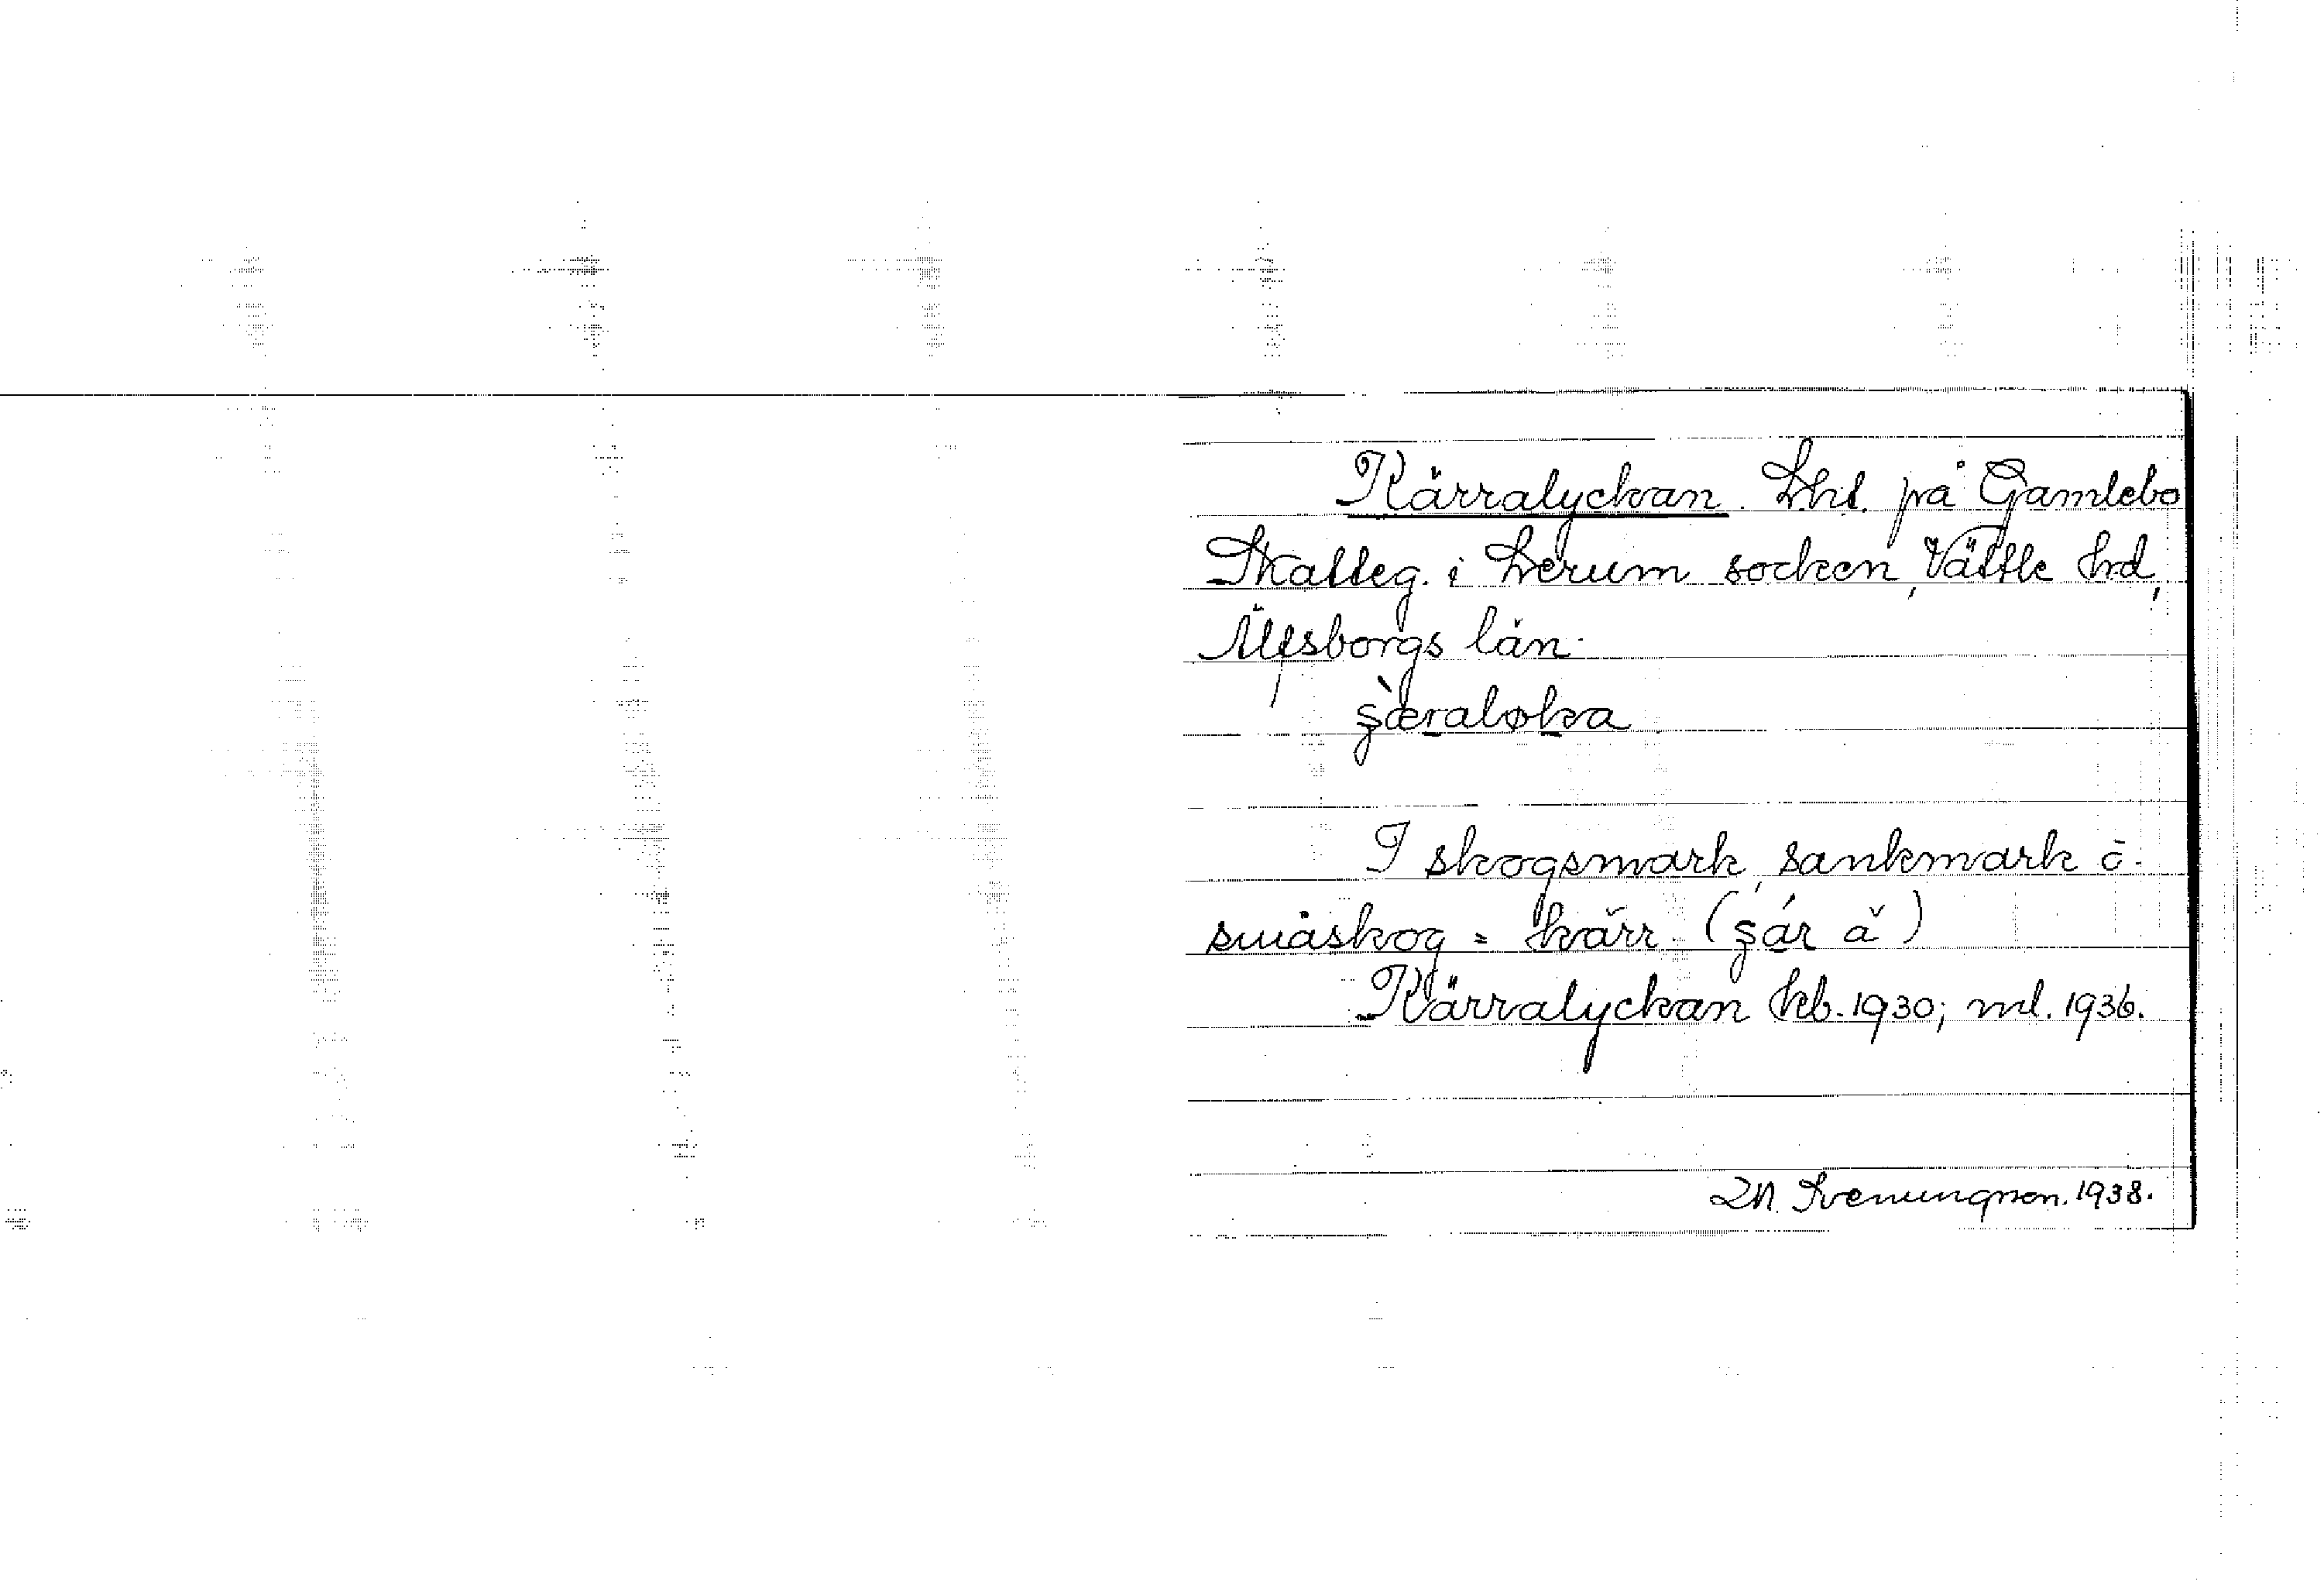 Kärralyckan. Lht. på Gamlebo
Skatteg. i Lerum socken, Vättle hrd,
Älfsborgs län.
I skogsmark, sankmark o.
småskog = kärr.
Kärralyckan kb. 1930; ml. 1936.
Svenungsson. 1938.